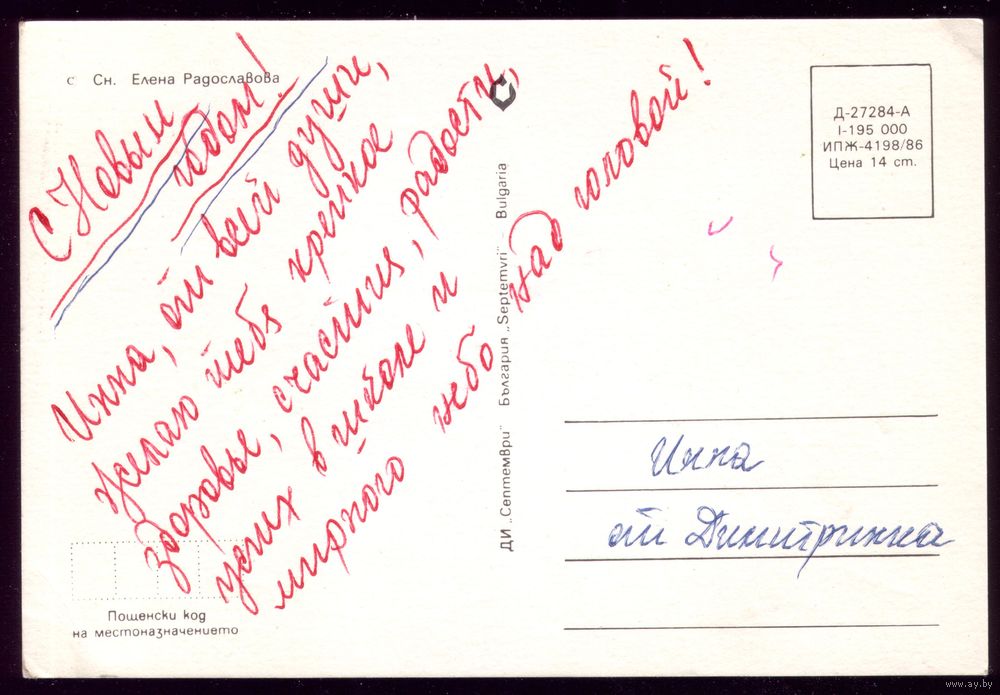 с Сн. Елена Радославова
С Новым
годом!
Инна, от всей души,
желаю тебе крепкое
здоровье, счастия, радости,
успих в школе и
мирного небо над головой!
ДИ „Септември" България „Septemvri" – Bulgaria
Д-27284-А
I-195 000
ИПЖ-4198/86
Цена 14 ст.
Инна
от Димитринка
Пощенски код
на местоназначението
www.ay.by